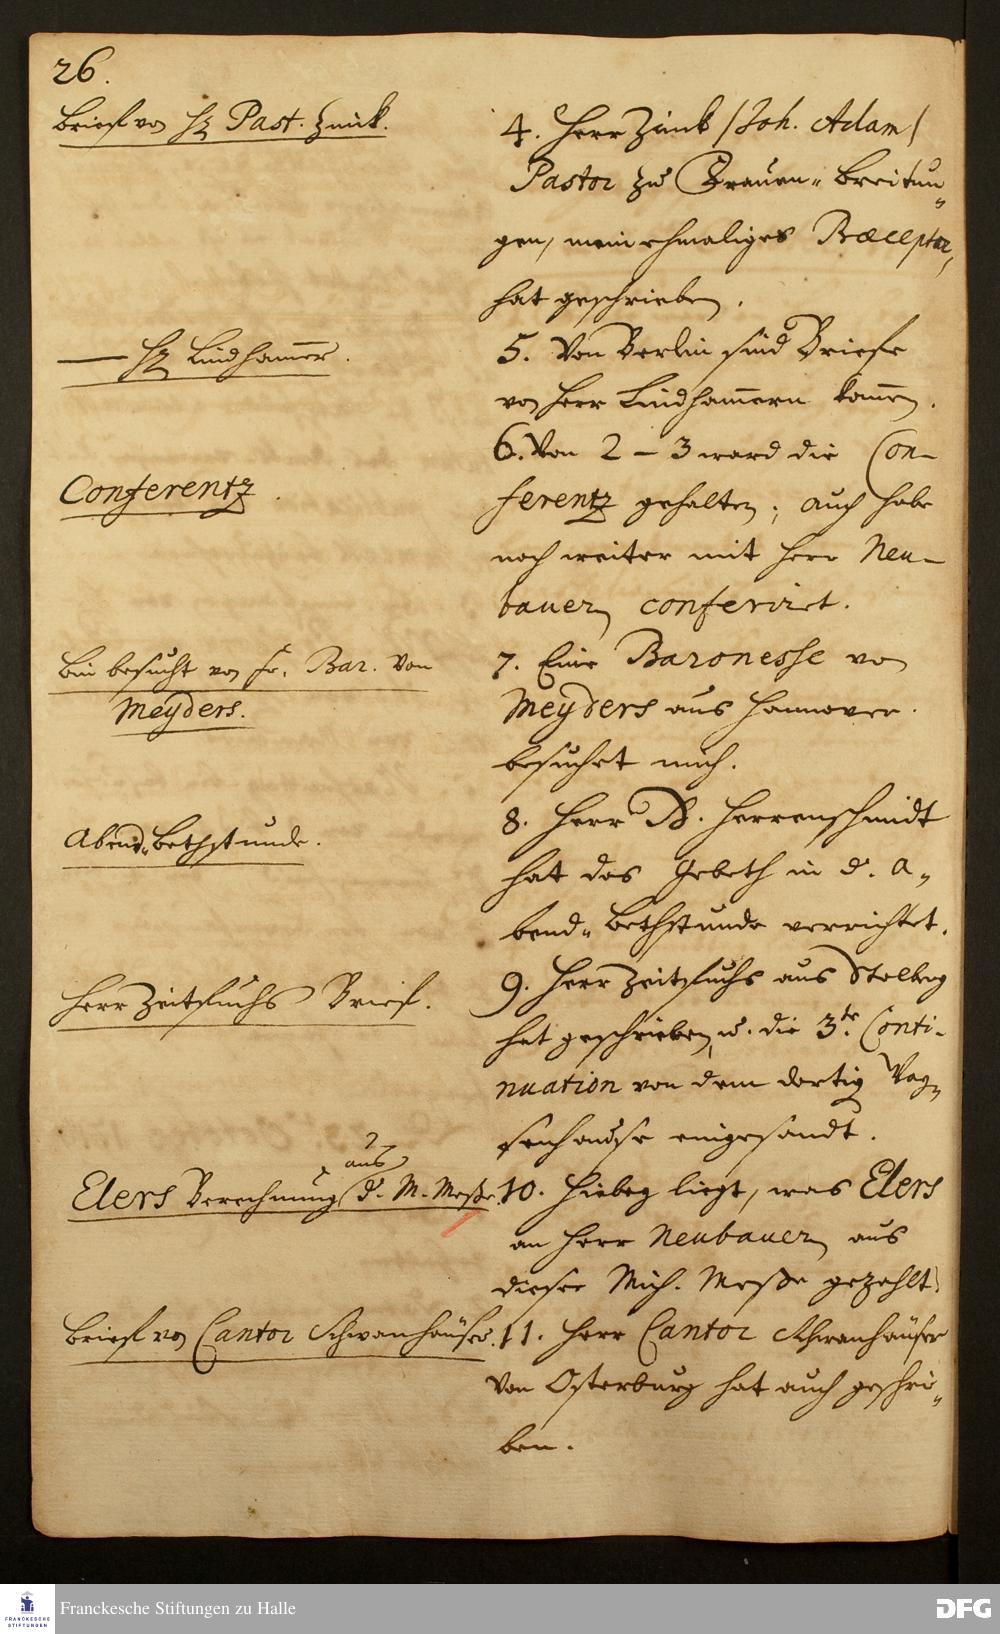 26.
Brief von H. Past. Zinck.
4. Herr Zinck /Joh. Adam/
Pastor zu Frauen-Breitun-
gen, mein ehmaliges Præceptor,
hat geschrieben.
— H. Lindhammer.
5. Von Berlin sind Briefe
von Herr Lindhammern kommen.
Conferentz.
6. Von 2 – 3 ward die Con-
ferentz gehalten; auch habe
noch weiter mit Herr Neu-
bauern conferiret.
Bin besucht von Fr. Bar. von
Meyders.
7. Eine Baronesse von
Meyders aus Hannover
besuchet mich.
Abend-Bethstunde.
8. Herr D. Herrenschmidt
hat das Gebeth in d. A-
bend-Bethstunde verrichtet.
Herr Zeitfuchs Brief.
9. Herr Zeitfuchs aus Stolberg
hat geschrieben, u. die 3te Conti-
nuation von dem dortig Way-
senhause eingesandt.
Elers Berechnung aus d. M. Meße.
10. Hiebey liegt, was Elers
an Herr Neubauern aus
dieser Mich. Meße gezahlt.
Brief von Cantor Schwanhäuser.
11. Herr Cantor Schwanhäuser
von Osterburg hat auch geschrie-
ben.
FRANCKESCHE STIFTUNGEN
Franckesche Stiftungen zu Halle
DFG